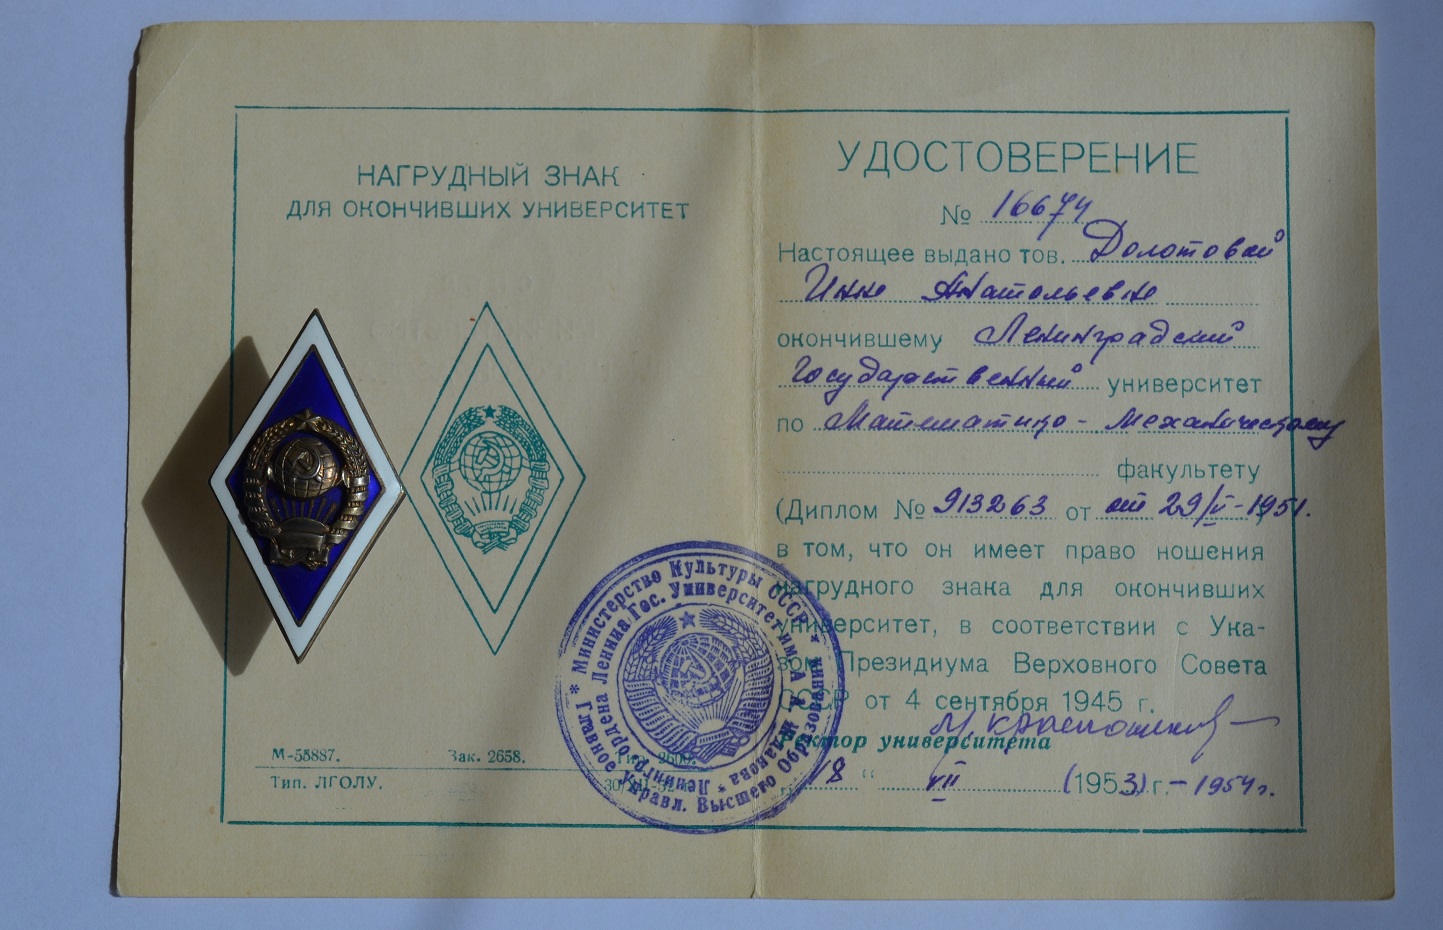 НАГРУДНЫЙ ЗНАК
ДЛЯ ОКОНЧИВШИХ УНИВЕРСИТЕТ
М-55887. Зак. 2658.
Тип. ЛГОЛУ.
УДОСТОВЕРЕНИЕ
№ 16674
Настоящее выдано тов. Долотовой
Инне Анатольевне
окончившему Ленинградский
Государственный университет
по Математико-Механическому
факультету
(Диплом № 913263 от от 29/V-1951.
в том, что он имеет право ношения
нагрудного знака для окончивших
университет, в соответствии с Ука-
зом Президиума Верховного Совета
СССР от 4 сентября 1945 г.
Ректор университета
18 " VII (1953) г. - 1954 г.
* Министерство Культуры СССР * Главное Управл. Высшего Образования
Ленингр. ордена Ленина Гос. Университет им. А. А. Жданова *